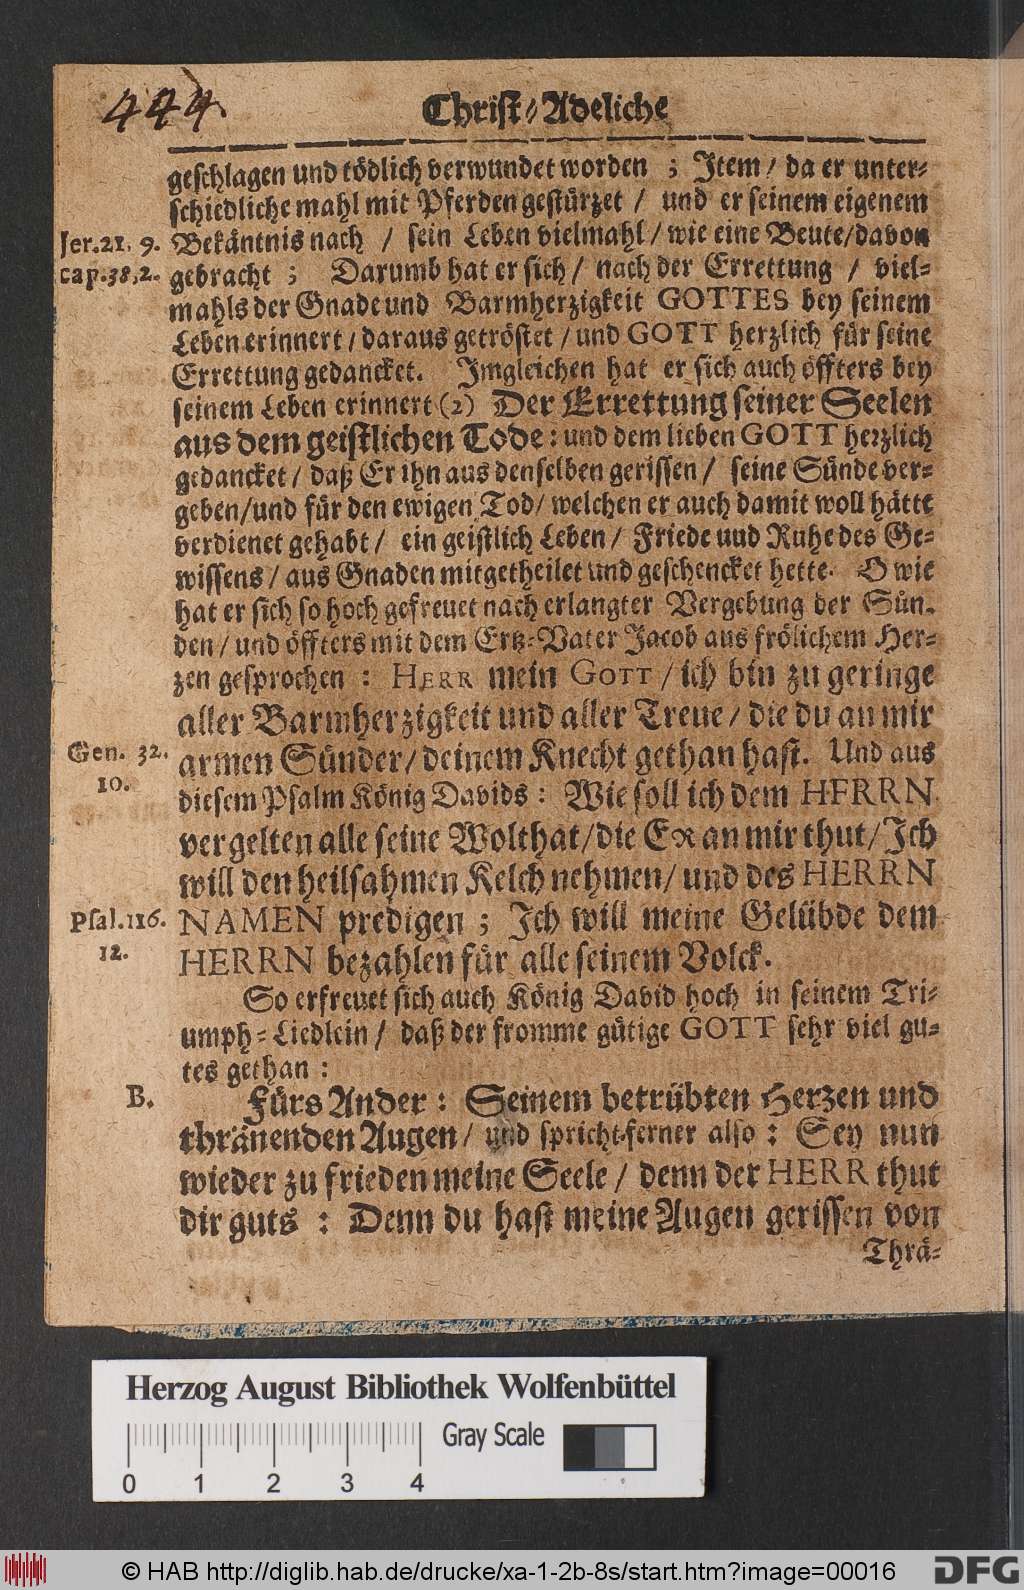 444.
Christ-Adeliche
geschlagen und tödlich verwundet worden ; Item / da er unter-
schiedliche mahl mit Pferden gestürzet / und er seinem eigenem
Jer. 21, 9. Bekäntnis nach / sein Leben vielmahl / wie eine Beute / davon
cap. 38, 2. gebracht ; Darumb hat er sich / nach der Errettung / viel-
mahls der Gnade und Barmherzigkeit GOTTES bey seinem
Leben erinnert / daraus getröstet / und GOTT herzlich für seine
Errettung gedancket. Imgleichen hat er sich auch öffters bey
seinem Leben erinnert (2) Der Errettung seiner Seelen
aus dem geistlichen Tode : und dem lieben GOTT herzlich
gedancket / daß Er ihn aus denselben gerissen / seine Sünde ver-
geben / und für den ewigen Tod / welchen er auch damit woll hätte
verdienet gehabt / ein geistlich Leben / Friede uud Ruhe des Ge-
wissens / aus Gnaden mitgetheilet und geschencket hette. O wie
hat er sich so hoch gefreuet nach erlangter Vergebung der Sün-
den / und öffters mit dem Ertz-Vater Jacob aus frölichem Her-
zen gesprochen : HERR mein GOTT / ich bin zu geringe
aller Barmherzigkeit und aller Treue / die du an mir
Gen. 32. armen Sünder / deinem Knecht gethan hast. Und aus
10. diesem Psalm König Davids : Wie soll ich dem HERRN
vergelten alle seine Wolthat / die ER an mir thut / Ich
will den heilsahmen Kelch nehmen / und des HERRN
Psal. 116. NAMEN predigen ; Ich will meine Gelübde dem
12. HERRN bezahlen für alle seinem Volck.
So erfreuet sich auch König David hoch in seinem Tri-
umph-Liedlein / daß der fromme gütige GOTT sehr viel gu-
tes gethan :
B. Fürs Ander : Seinem betrübten Herzen und
thränenden Augen / und spricht ferner also : Sey nun
wieder zu frieden meine Seele / denn der HERR thut
dir guts : Denn du hast meine Augen gerissen von
Thrä-
Herzog August Bibliothek Wolfenbüttel
Gray Scale
0 1 2 3 4
© HAB http://diglib.hab.de/drucke/xa-1-2b-8s/start.htm?image=00016
DFG